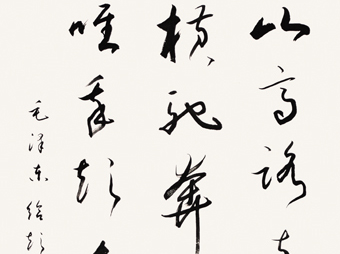 山高路
横驰奔
唯我彭
毛泽东给彭